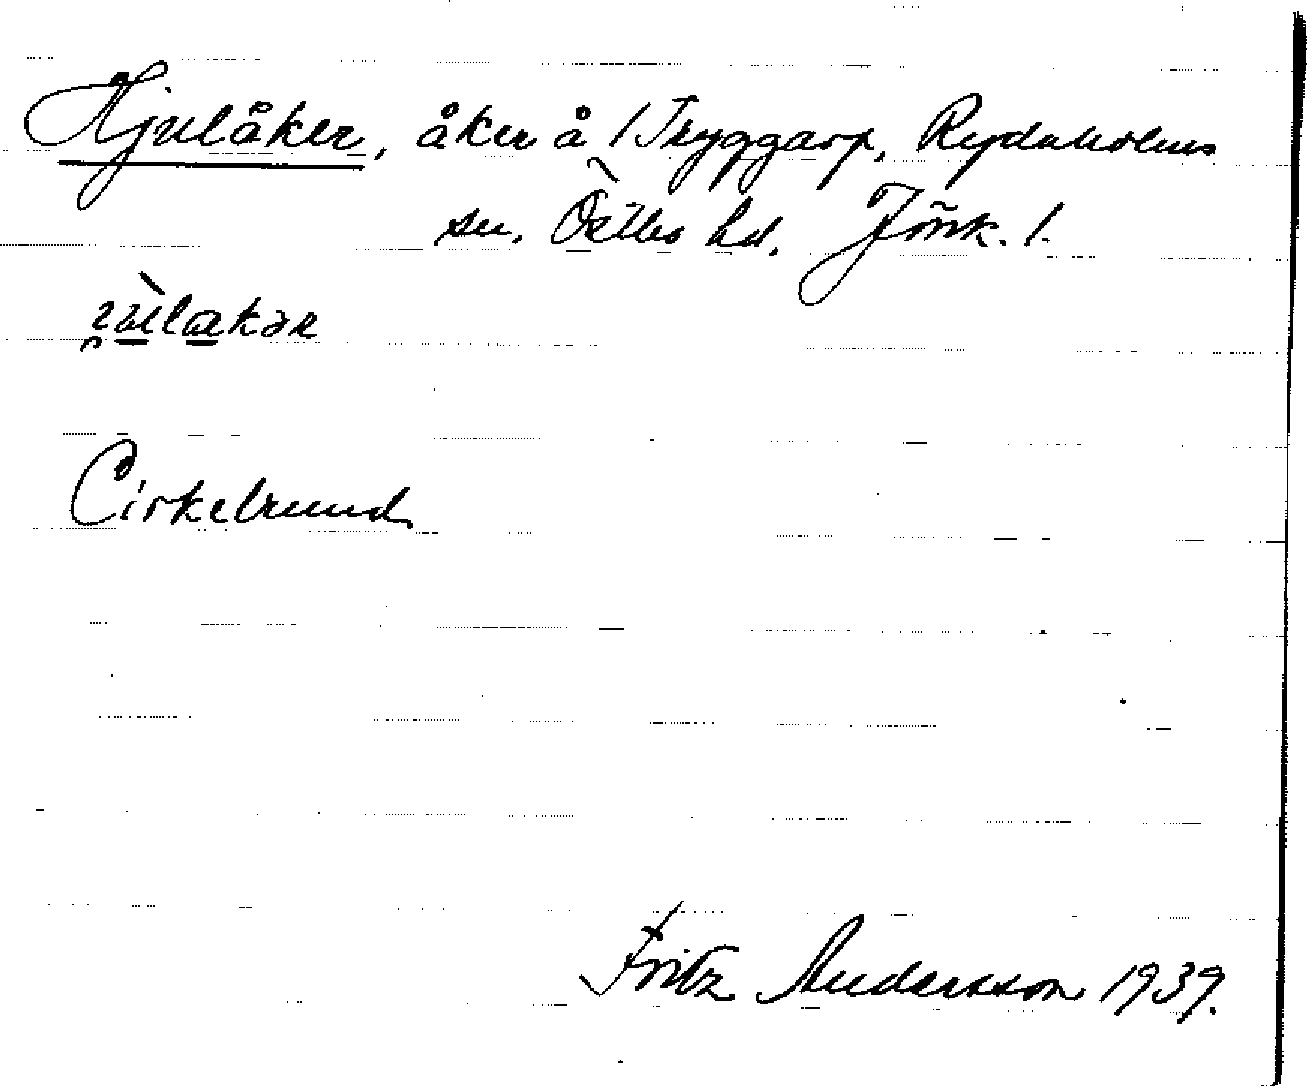 Hjulåker, åker å /Tryggarp, Rydaholms
sn. Östbo hd. Jönk. l.
Cirkelrund
Fritz Andersson 1939.